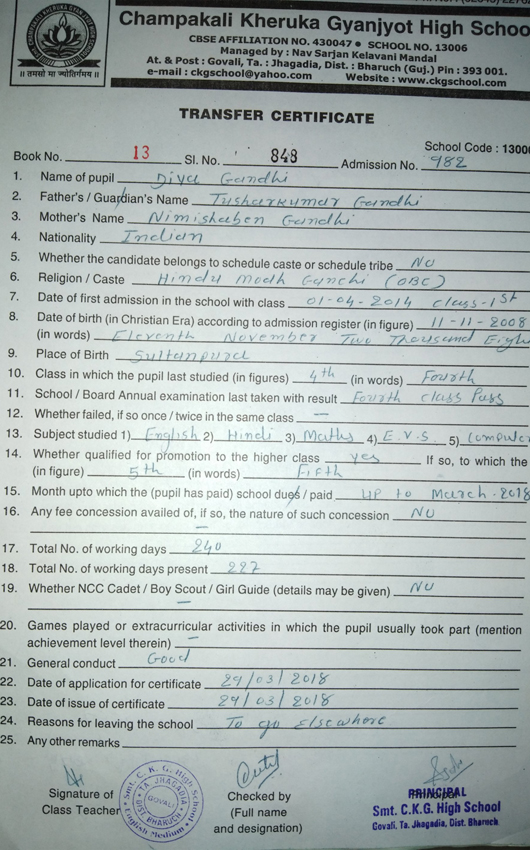 || तमसो मा ज्योतिर्गमय ||
Champakali Kheruka Gyanjyot High Schoo
CBSE AFFILIATION NO. 430047 • SCHOOL NO. 13006
Managed by : Nav Sarjan Kelavani Mandal
At. & Post : Govali, Ta. : Jhagadia, Dist. : Bharuch (Guj.) Pin : 393 001.
e-mail : ckgschool@yahoo.com Website : www.ckgschool.com
TRANSFER CERTIFICATE
School Code : 1300
Book No. 13 Sl. No. 848 Admission No. 982
1. Name of pupil Diya Gandhi
2. Father's / Guardian's Name Tusharkumar Gandhi
3. Mother's Name Nimishaben Gandhi
4. Nationality Indian
5. Whether the candidate belongs to schedule caste or schedule tribe NO
6. Religion / Caste Hindu Modh Ganchi (OBC)
7. Date of first admission in the school with class 01-04-2014 class-1st
8. Date of birth (in Christian Era) according to admission register (in figure) 11-11-2008
(in words) Eleventh November Two Thousand Eigh
9. Place of Birth Sultanpura
10. Class in which the pupil last studied (in figures) 4th (in words) Fourth
11. School / Board Annual examination last taken with result Fourth class Pass
12. Whether failed, if so once / twice in the same class —
13. Subject studied 1) English 2) Hindi 3) Maths 4) E.V.S 5) Computer
14. Whether qualified for promotion to the higher class yes If so, to which the
(in figure) 5th (in words) Fifth
15. Month upto which the (pupil has paid) school dues / paid UP to March-2018
16. Any fee concession availed of, if so, the nature of such concession NO
—
17. Total No. of working days 240
18. Total No. of working days present 227
19. Whether NCC Cadet / Boy Scout / Girl Guide (details may be given) NO
—
20. Games played or extracurricular activities in which the pupil usually took part (mention
achievement level therein) —
21. General conduct Good
22. Date of application for certificate 29/03/2018
23. Date of issue of certificate 29/03/2018
24. Reasons for leaving the school To go Elsewhore
25. Any other remarks
Signature of
Class Teacher
Smt. C. K. G. High School
English Medium
TA. JHAGADIA
GOVALI
DIST. BHARUCH
Checked by
(Full name
and designation)
PRINCIPAL
Smt. C.K.G. High School
Govali, Ta. Jhagadia, Dist. Bharuch.